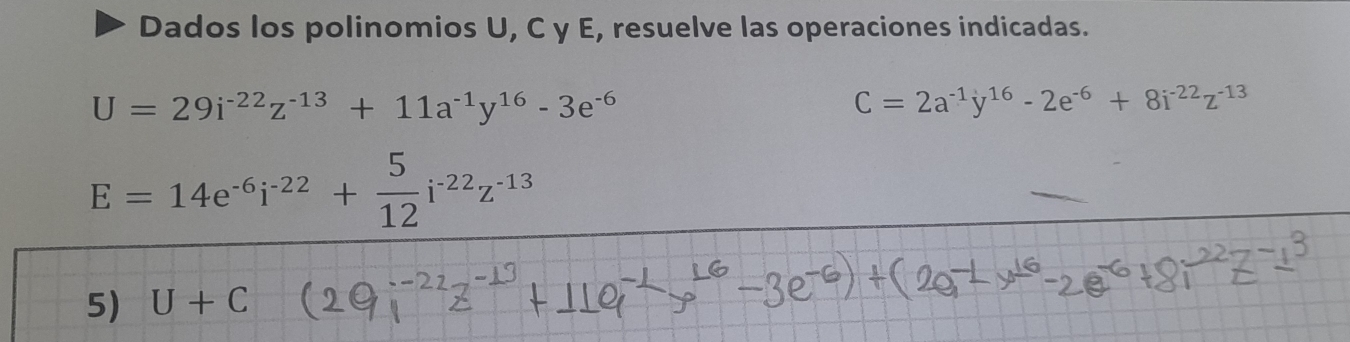 ▶ Dados los polinomios U, C y E, resuelve las operaciones indicadas.
U = 29i⁻²²z⁻¹³ + 11a⁻¹y¹⁶ - 3e⁻⁶ C = 2a⁻¹y¹⁶ - 2e⁻⁶ + 8i⁻²²z⁻¹³
E = 14e⁻⁶i⁻²² + 5/12 i⁻²²z⁻¹³
5) U + C (29i⁻²²z⁻¹³ + 11a⁻¹y¹⁶ - 3e⁻⁶) + (2a⁻¹y¹⁶ - 2e⁻⁶ + 8i⁻²²z⁻¹³